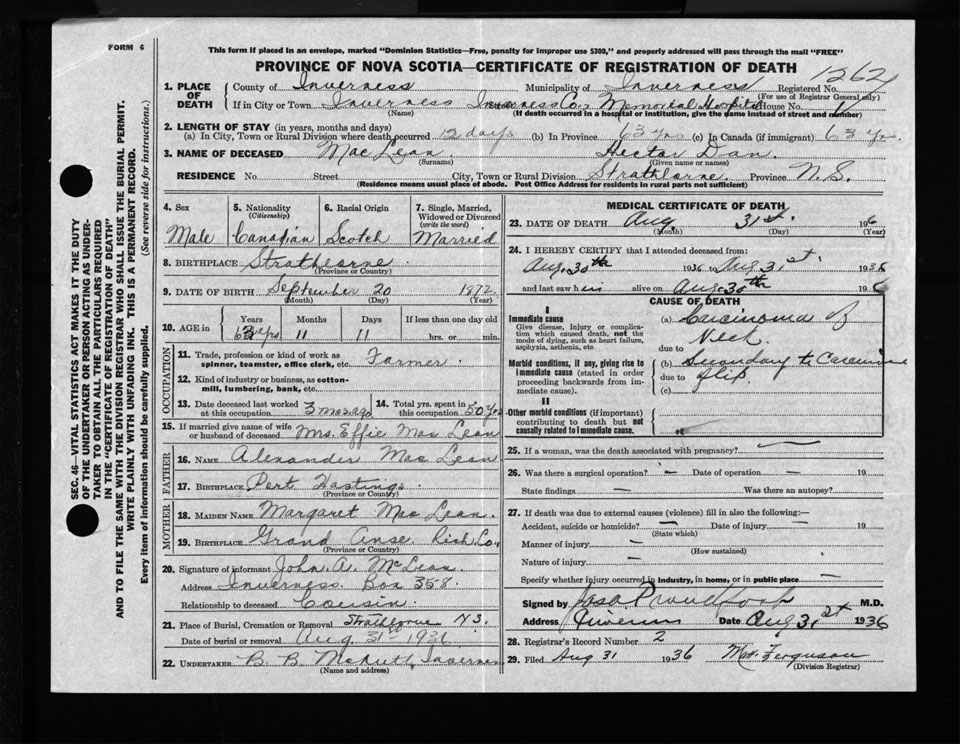 FORM 6
This form if placed in an envelope, marked "Dominion Statistics—Free, penalty for improper use $300," and properly addressed will pass through the mail "FREE"
PROVINCE OF NOVA SCOTIA—CERTIFICATE OF REGISTRATION OF DEATH
1262
1. PLACE OF DEATH
County of Inverness Municipality of Inverness Registered No.
(For use of Registrar General only)
If in City or Town Inverness Inverness Co., Memorial Hospital House No.
(Name) (If death occurred in a hospital or institution, give the name instead of street and number)
2. LENGTH OF STAY (in years, months and days)
(a) In City, Town or Rural Division where death occurred 12 days (b) In Province 63 yrs (c) In Canada (if immigrant) 63 yrs.
3. NAME OF DECEASED Mac Lean Hector Dan.
(Surname) (Given name or names)
RESIDENCE No. Street City, Town or Rural Division Strathlorne Province N.S.
(Residence means usual place of abode. Post Office Address for residents in rural parts not sufficient)
4. Sex Male
5. Nationality (Citizenship) Canadian
6. Racial Origin Scotch
7. Single, Married, Widowed or Divorced (write the word) Married
8. BIRTHPLACE Strathlorne
(Province or Country)
9. DATE OF BIRTH September 20 1872
(Month) (Day) (Year)
10. AGE in Years Months Days If less than one day old
63 yrs 11 11 hrs. or min.
OCCUPATION
11. Trade, profession or kind of work as spinner, teamster, office clerk, etc. Farmer.
12. Kind of industry or business, as cotton-mill, lumbering, bank, etc.
13. Date deceased last worked at this occupation 3 mos. ago
14. Total yrs. spent in this occupation 50 yrs
15. If married give name of wife or husband of deceased Mrs. Effie Mac Lean
FATHER
16. NAME Alexander Mac Lean
17. BIRTHPLACE Port Hastings
(Province or Country)
MOTHER
18. MAIDEN NAME Margaret Mac Lean.
19. BIRTHPLACE Grand Anse Rich. Co.
(Province or Country)
20. Signature of informant John. A. McLean
Address Inverness. Box 358.
Relationship to deceased Cousin.
21. Place of Burial, Cremation or Removal Strathlorne N.S.
Date of burial or removal Aug 31st 1936
22. UNDERTAKER B. B. Inverness
(Name and address)
MEDICAL CERTIFICATE OF DEATH
23. DATE OF DEATH Aug. 31st. 1936
(Month) (Day) (Year)
24. I HEREBY CERTIFY that I attended deceased from:
Aug. 30th 1936 to Aug 31st. 1936
and last saw him alive on Aug. 30th 1936
CAUSE OF DEATH
I
Immediate cause
Give disease, injury or complication which caused death, not the mode of dying, such as heart failure, asphyxia, asthenia, etc.
(a) Carcinoma of Neck
due to
Morbid conditions, if any, giving rise to immediate cause (stated in order proceeding backwards from immediate cause).
(b) Secondary to Carcinoma
due to of lip.
(c)
II
Other morbid conditions (if important) contributing to death but not causally related to immediate cause.
25. If a woman, was the death associated with pregnancy? —
26. Was there a surgical operation? — Date of operation — 19
State findings — Was there an autopsy?
27. If death was due to external causes (violence) fill in also the following:—
Accident, suicide or homicide? — Date of injury — 19
(State which)
Manner of injury —
(How sustained)
Nature of injury —
Specify whether injury occurred in industry, in home, or in public place —
Signed by Proudfoot M.D.
Address Inverness Date Aug 31st 1936
28. Registrar's Record Number 2
29. Filed Aug 31 1936 Ferguson
(Division Registrar)
SEC. 46—VITAL STATISTICS ACT MAKES IT THE DUTY
OF THE UNDERTAKER OR PERSON ACTING AS UNDER-
TAKER TO OBTAIN ALL THE PARTICULARS REQUIRED
IN THE "CERTIFICATE OF REGISTRATION OF DEATH"
AND TO FILE THE SAME WITH THE DIVISION REGISTRAR WHO SHALL ISSUE THE BURIAL PERMIT.
WRITE PLAINLY WITH UNFADING INK. THIS IS A PERMANENT RECORD.
Every item of information should be carefully supplied. (See reverse side for instructions.)